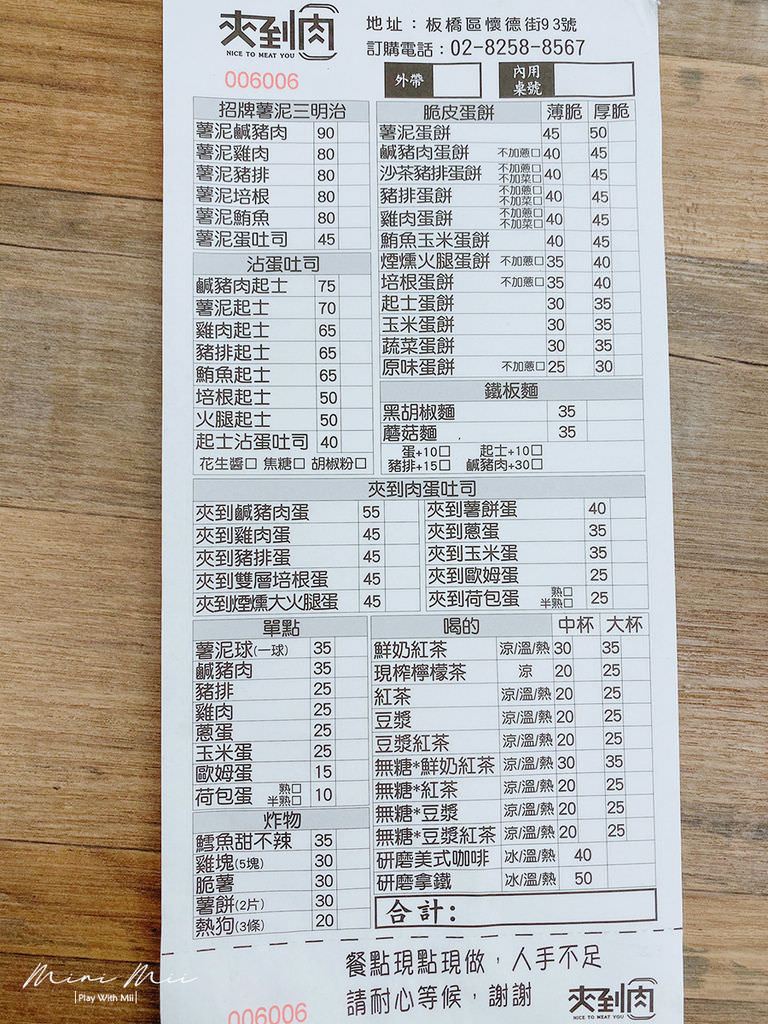 夾到肉
NICE TO MEAT YOU
地址：板橋區懷德街93號
訂購電話：02-8258-8567
006006
外帶
內用桌號
招牌薯泥三明治
薯泥鹹豬肉 90
薯泥雞肉 80
薯泥豬排 80
薯泥培根 80
薯泥鮪魚 80
薯泥蛋吐司 45
沾蛋吐司
鹹豬肉起士 75
薯泥起士 70
雞肉起士 65
豬排起士 65
鮪魚起士 65
培根起士 50
火腿起士 50
起士沾蛋吐司 40
花生醬□ 焦糖□ 胡椒粉□
脆皮蛋餅 薄脆 厚脆
薯泥蛋餅 45 50
鹹豬肉蛋餅 不加蔥□ 40 45
沙茶豬排蛋餅 不加蔥□ 不加菜□ 40 45
豬排蛋餅 不加蔥□ 不加菜□ 40 45
雞肉蛋餅 不加蔥□ 不加菜□ 40 45
鮪魚玉米蛋餅 40 45
煙燻火腿蛋餅 不加蔥□ 35 40
培根蛋餅 不加蔥□ 35 40
起士蛋餅 30 35
玉米蛋餅 30 35
蔬菜蛋餅 30 35
原味蛋餅 不加蔥□ 25 30
鐵板麵
黑胡椒麵 35
蘑菇麵 35
蛋+10□ 起士+10□
豬排+15□ 鹹豬肉+30□
夾到肉蛋吐司
夾到鹹豬肉蛋 55
夾到雞肉蛋 45
夾到豬排蛋 45
夾到雙層培根蛋 45
夾到煙燻大火腿蛋 45
夾到薯餅蛋 40
夾到蔥蛋 35
夾到玉米蛋 35
夾到歐姆蛋 25
夾到荷包蛋 熟□ 半熟□ 25
單點
薯泥球(一球) 35
鹹豬肉 35
豬排 25
雞肉 25
蔥蛋 25
玉米蛋 25
歐姆蛋 15
荷包蛋 熟□ 半熟□ 10
炸物
鱈魚甜不辣 35
雞塊(5塊) 30
脆薯 30
薯餅(2片) 30
熱狗(3條) 20
喝的 中杯 大杯
鮮奶紅茶 涼/溫/熱 30 35
現榨檸檬茶 涼 20 25
紅茶 涼/溫/熱 20 25
豆漿 涼/溫/熱 20 25
豆漿紅茶 涼/溫/熱 20 25
無糖*鮮奶紅茶 涼/溫/熱 30 35
無糖*紅茶 涼/溫/熱 20 25
無糖*豆漿 涼/溫/熱 20 25
無糖*豆漿紅茶 涼/溫/熱 20 25
研磨美式咖啡 冰/溫/熱 40
研磨拿鐵 冰/溫/熱 50
合計：
餐點現點現做，人手不足
請耐心等候，謝謝
夾到肉
NICE TO MEAT YOU
006006
Mini Mii
|Play With Mii|